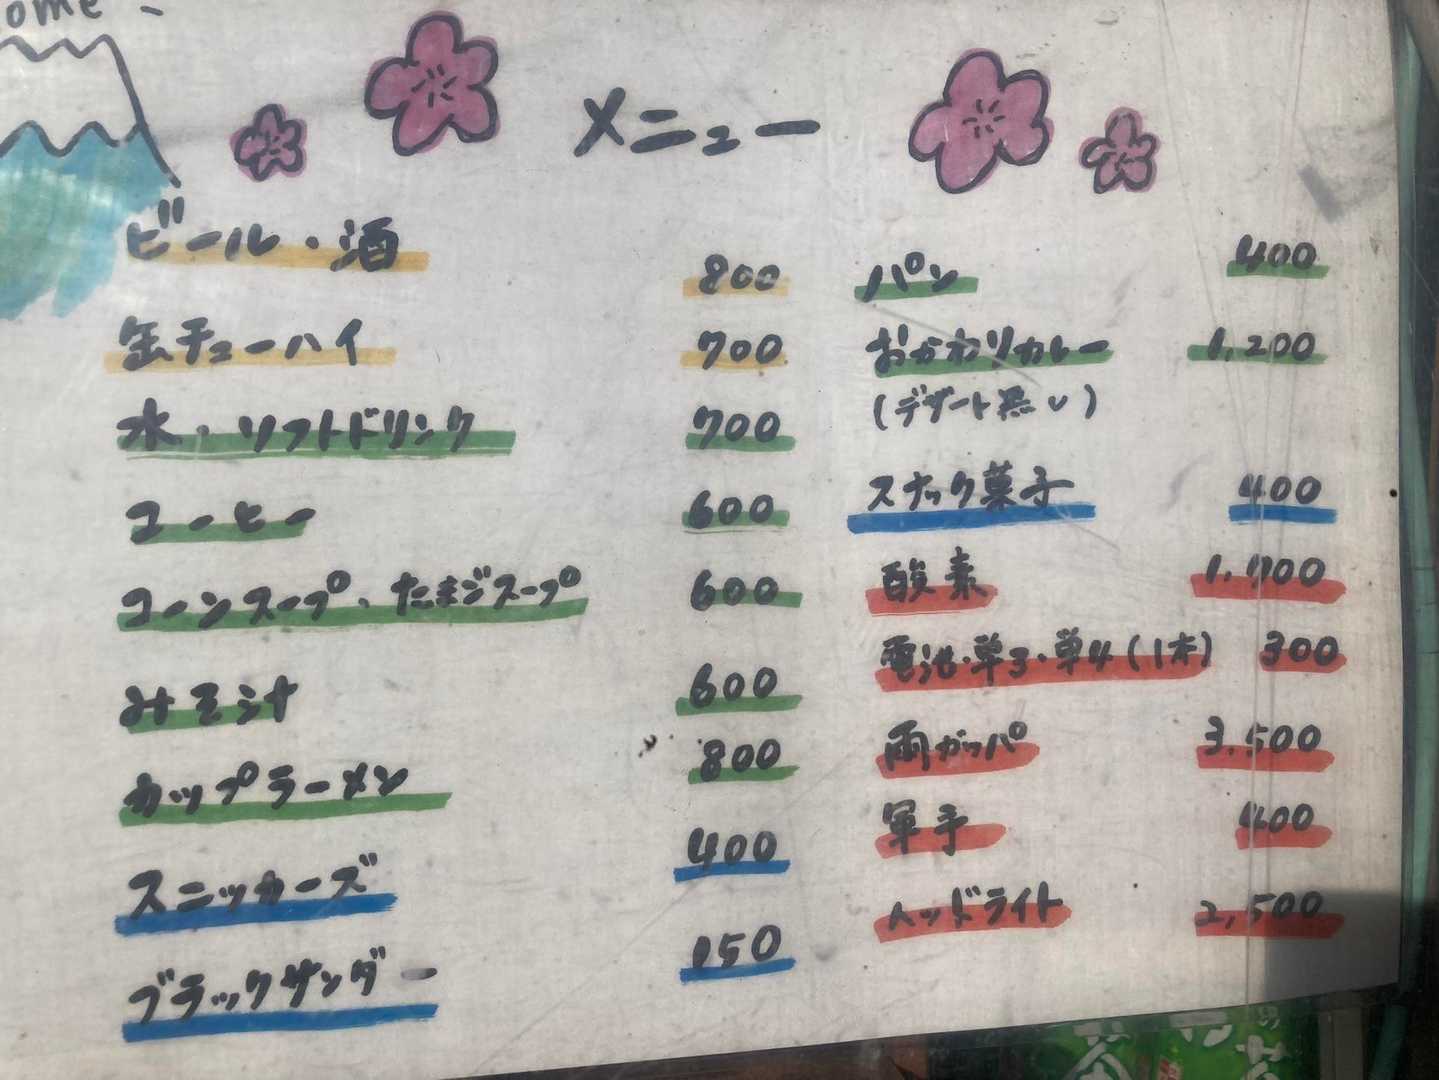 ome -
メニュー
ビール・酒 800
缶チューハイ 700
水・ソフトドリンク 700
コーヒー 600
コーンスープ、たまごスープ 600
みそ汁 600
カップラーメン 800
スニッカーズ 400
ブラックサンダー 150
パン 400
おかわりカレー 1,200
(デザート無し)
スナック菓子 400
酸素
電池・単3・単4(1本) 300
雨ガッパ 3,500
軍手 400
ヘッドライト 2,500